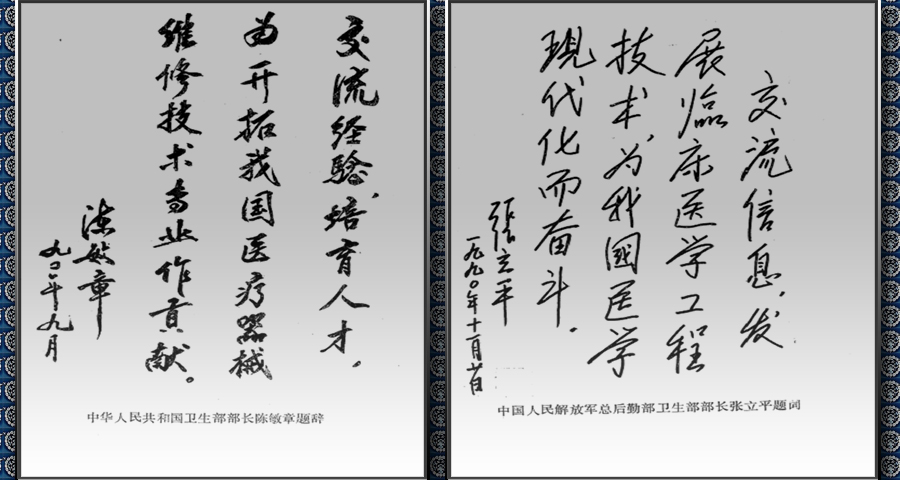 交流经验，培育人才，
为开拓我国医疗器械
维修技术专业作贡献。
陈敏章
九〇年九月
中华人民共和国卫生部部长陈敏章题辞
交流信息，发
展临床医学工程
技术，为我國医学
现代化而奋斗．
张立平
一九九〇年十一月廿日
中国人民解放军总后勤部卫生部部长张立平题词